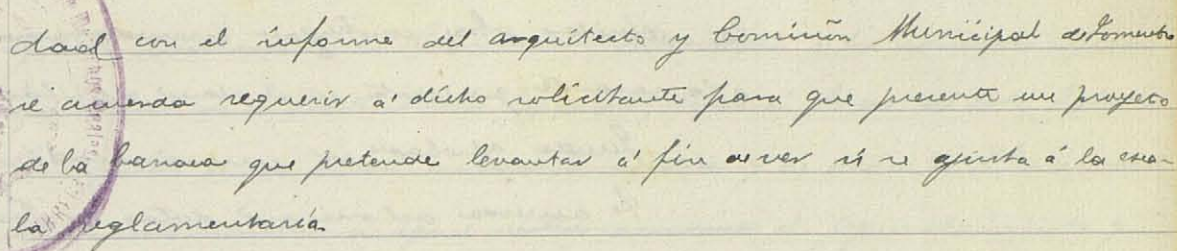 dad con el informe del arquitecto y Comisión Municipal de Fomento
se acuerda requerir á dicho solicitante para que presente un proyecto
de la barraca que pretende levantar á fin de ver si se ajusta á la esca-
la reglamentaria